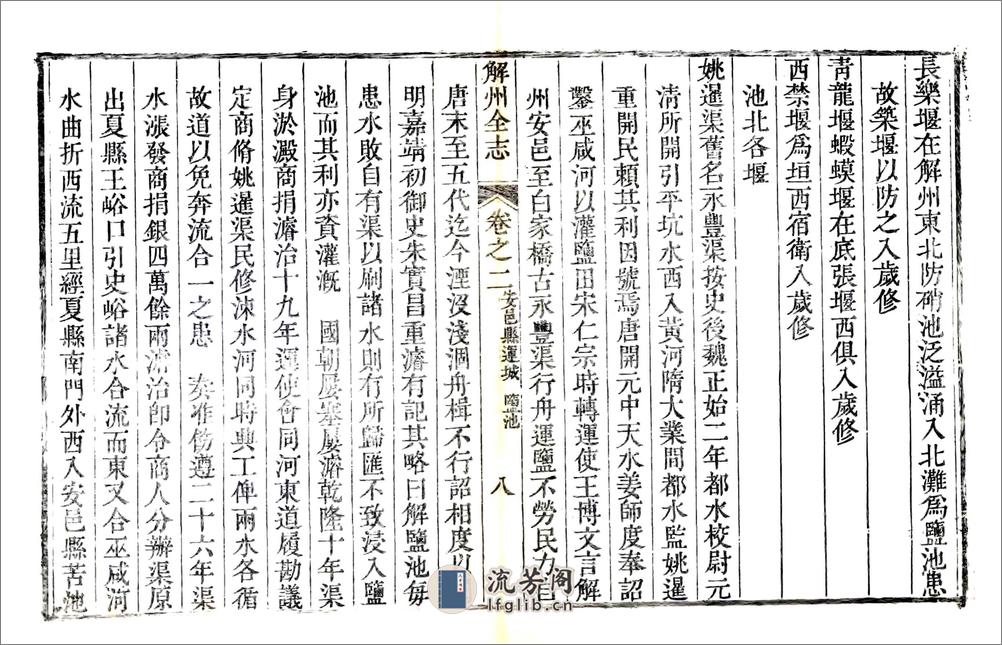 長樂堰在解州東北防硝池泛溢涌入北灘爲鹽池患
故築堰以防之入歲修
青龍堰蝦蟆堰在底張堰西俱入歲修
西禁堰爲垣西宿衛入歲修
池北各堰
姚暹渠舊名永豐渠按史後魏正始二年都水校尉元
清所開引平坑水西入黃河隋大業間都水監姚暹
重開民賴其利因號焉唐開元中天水姜師度奉詔
鑿巫咸河以灌鹽田宋仁宗時轉運使王博文言解
州安邑至白家橋古永豐渠行舟運鹽不勞民力自
解州全志
卷之二
安邑縣運城
鹽池
八
唐末至五代迄今湮沒淺涸舟楫不行詔相度以
明嘉靖初御史朱實昌重濬有記其略曰解鹽池每
患水敗自有渠以刷諸水則有所歸匯不致浸入鹽
池而其利亦資灌漑 國朝屡塞屡濬乾隆十年渠
身淤澱商捐濬治十九年運使會同河東道履勘議
定商脩姚暹渠民修涑水河同時興工俾兩水各循
故道以免奔流合一之患 奏准飭遵二十六年渠
水漲發商捐銀四萬餘兩濬治卽令商人分辦渠原
出夏縣王峪口引史峪諸水合流而東又合巫咸河
水曲折西流五里經夏縣南門外西入安邑縣苦池
流芳阁
lfglib.cn